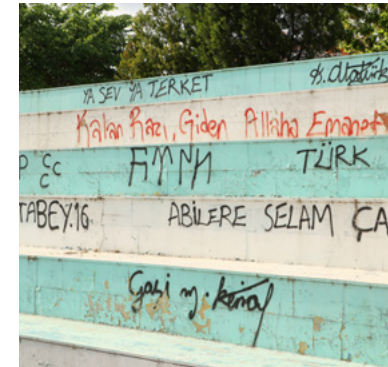 YA SEV YA TERKET K. Atatürk
Kalan Razı, Giden Allaha Emanet
CCC TÜRK
TABEY.16 ABİLERE SELAM ÇA
Gazi M. Kemal